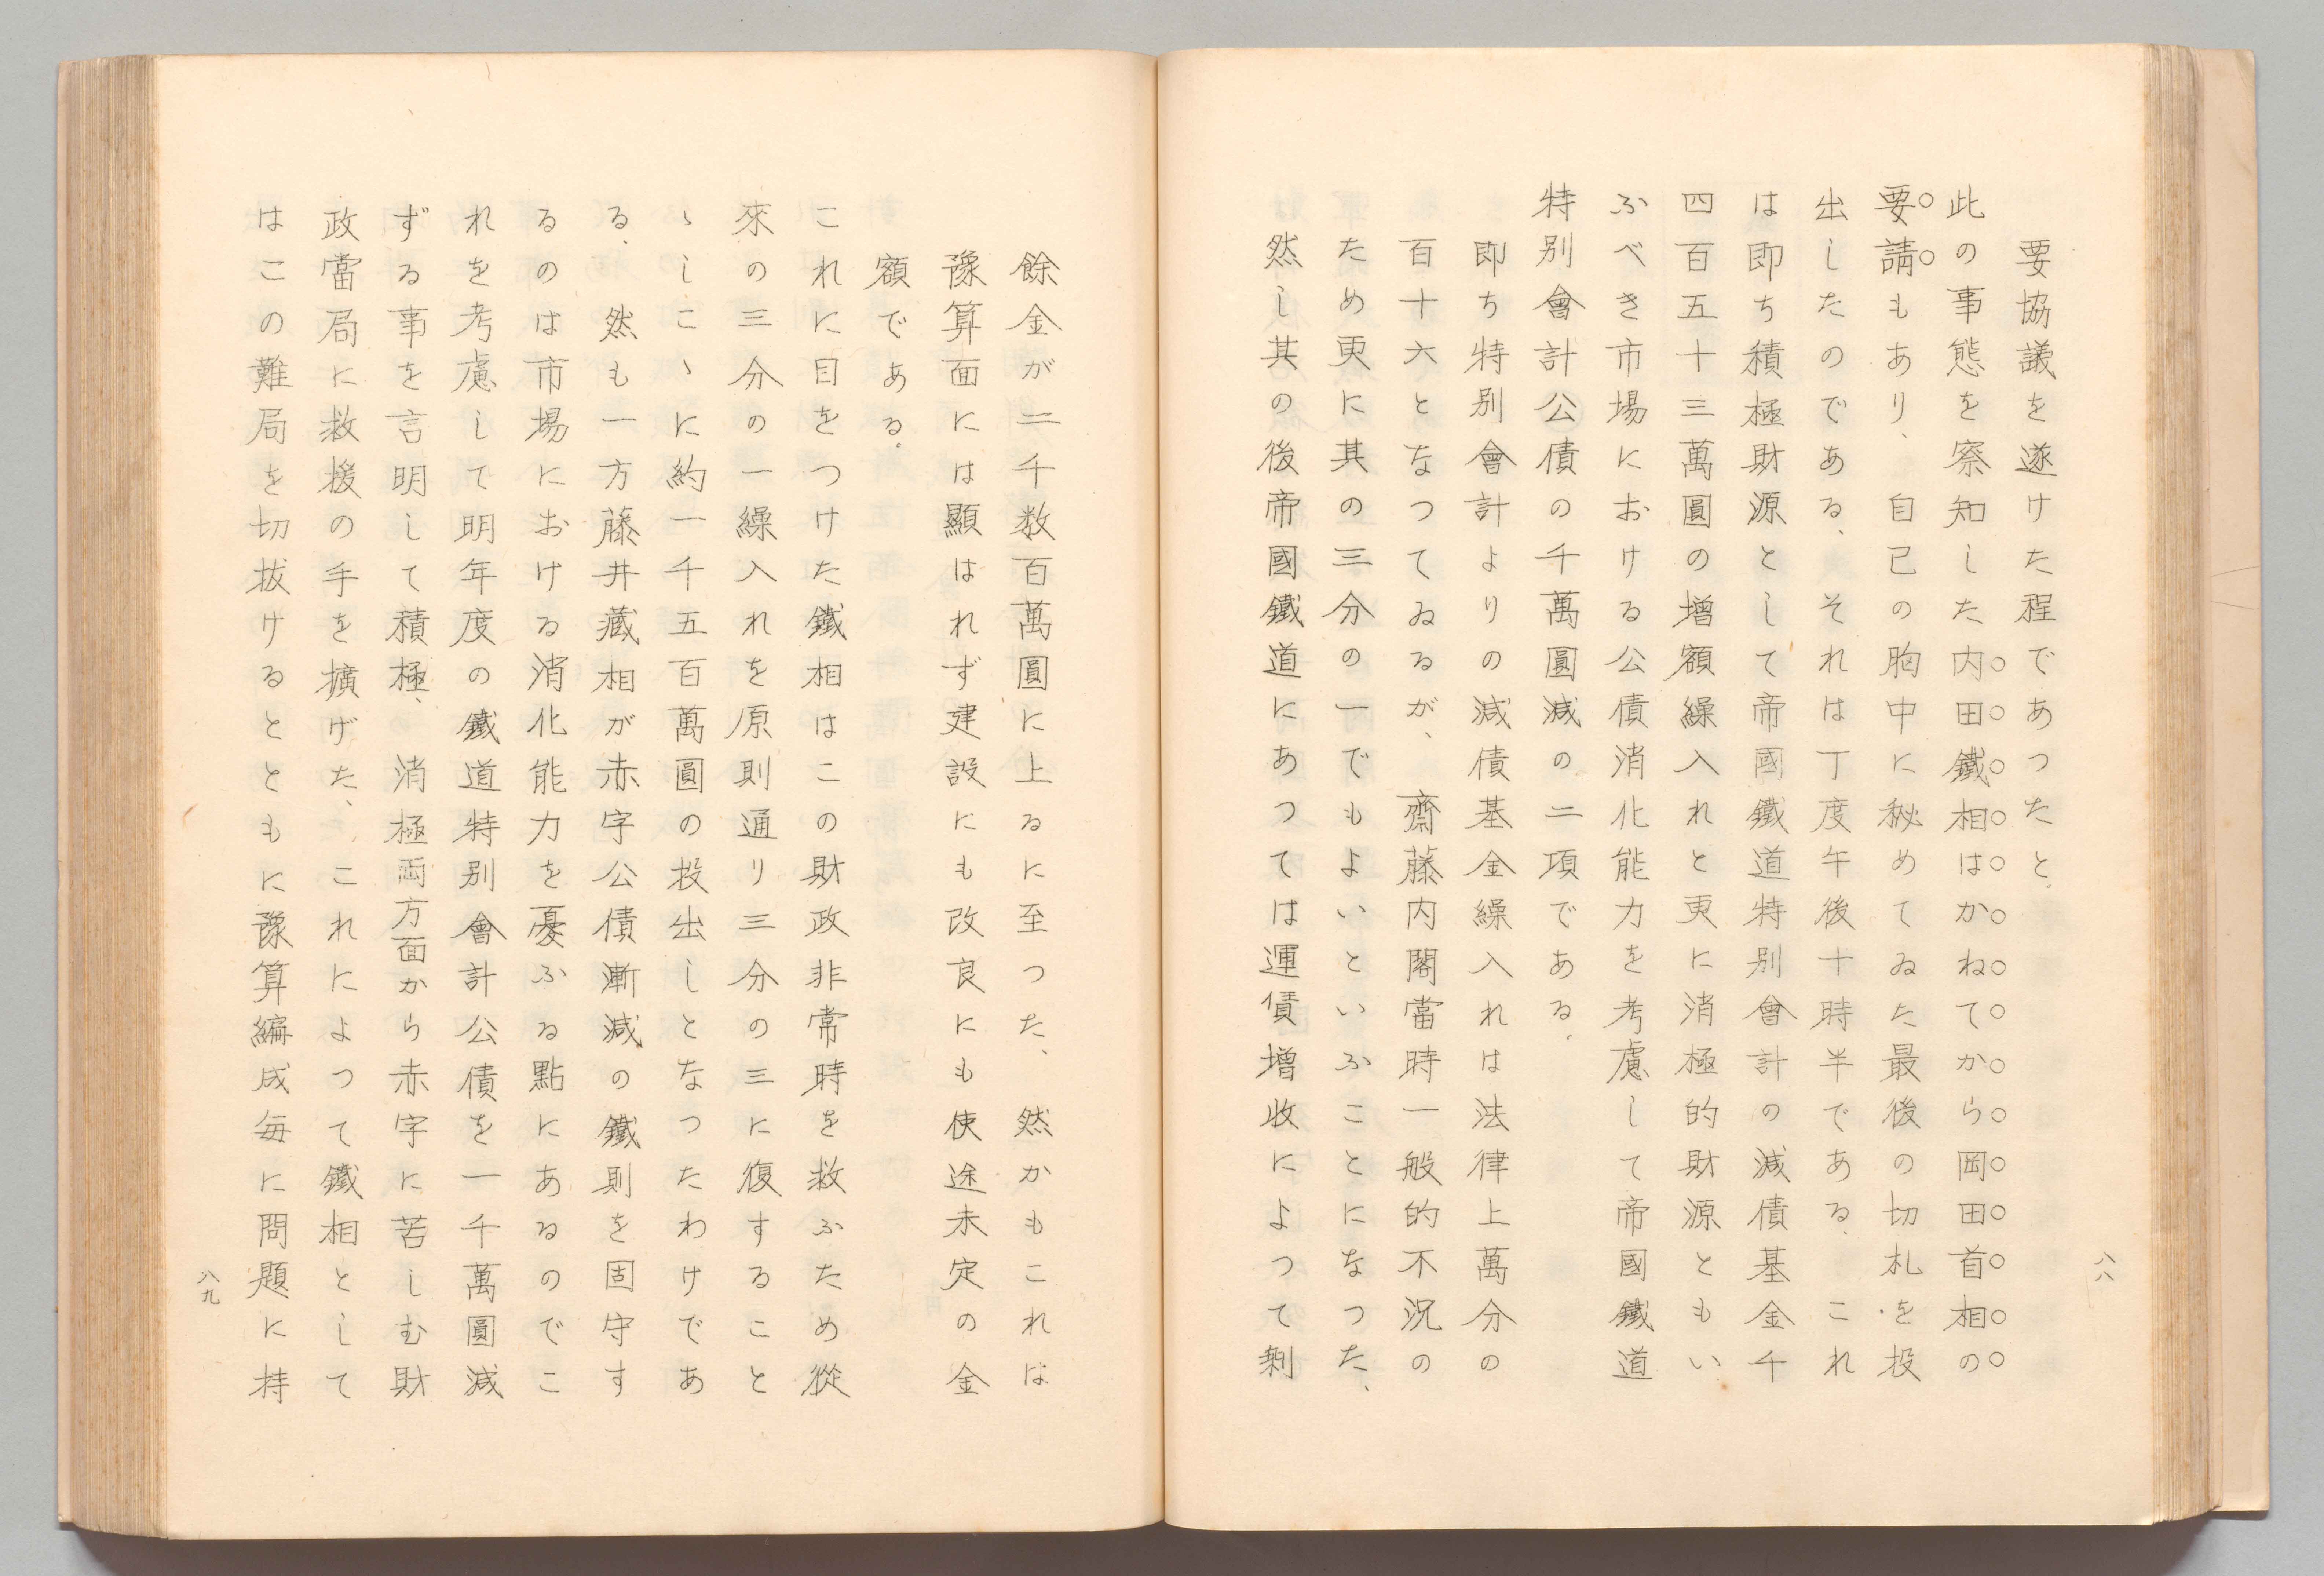 要協議を遂けた程であつたと、
此の事態を察知した内田鐵相はかねてから岡田首相の
要請もあり、自己の胸中に秘めてゐた最後の切札を投
出したのである、それは丁度午後十時半である、これ
は即ち積極財源として帝國鐵道特別會計の減債基金千
四百五十三萬圓の増額繰入れと更に消極的財源ともい
ふべき市場における公債消化能力を考慮して帝國鐵道
特別會計公債の千萬圓減の二項である、
即ち特別會計よりの減債基金繰入れは法律上萬分の
百十六となつてゐるが、齋藤内閣當時一般的不況の
ため更に其の三分の一でもよいといふことになつた、
然し其の後帝國鐵道にあつては運賃増收によつて剰
八八
餘金が二千数百萬圓に上るに至つた、然かもこれは
豫算面には顯はれず建設にも改良にも使途未定の金
額である。
これに目をつけた鐵相はこの財政非常時を救ふため從
來の三分の一繰入れを原則通り三分の三に復すること
ゝしこゝに約一千五百萬圓の投出しとなつたわけであ
る、然も一方藤井藏相が赤字公債漸減の鐵則を固守す
るのは市場における消化能力を憂ふる點にあるのでこ
れを考慮して明年度の鐵道特別會計公債を一千萬圓減
ずる事を言明して積極、消極両方面から赤字に苦しむ財
政當局に救援の手を擴げた、これによつて鐵相として
はこの難局を切拔けるとともに豫算編成毎に問題に持
八九